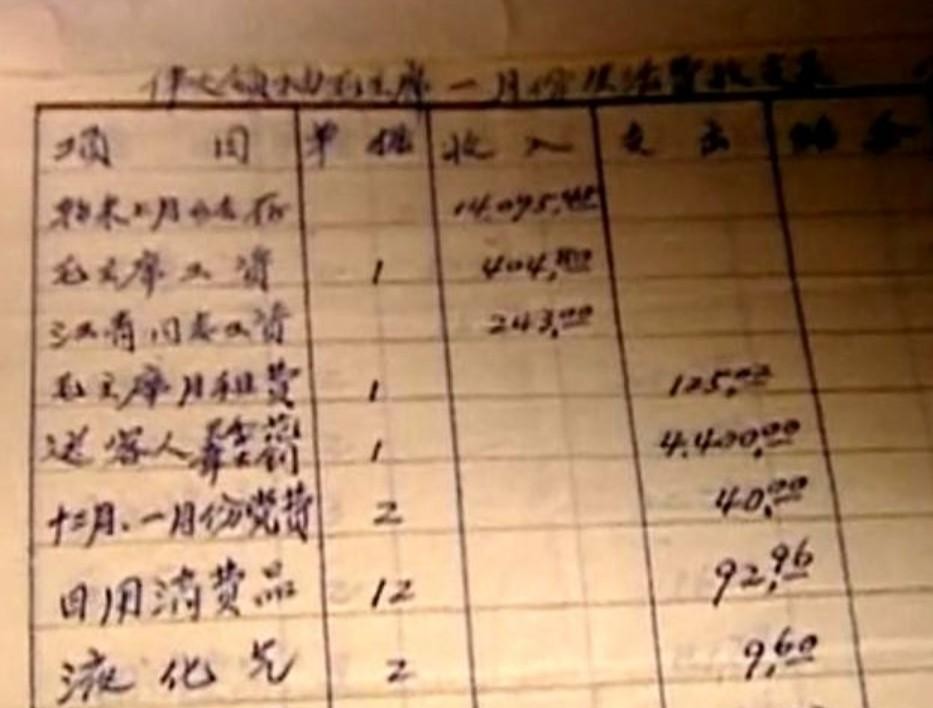 伟大领袖毛主席一月份生活费收支表
项 目 单 据 收 入 支 出 结 余
14,095.42
毛主席工资 1 404.80
江青同志工资 243.00
毛主席月租费 1 125.02
送客人 1 4,400.00
十二月、一月份党费 2 40.00
日用消费品 12 92.96
液化气 2 9.60